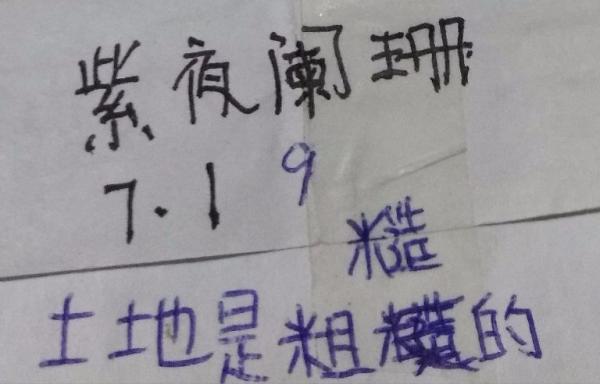 紫夜阑珊
7.19
糙
土地是粗糙的